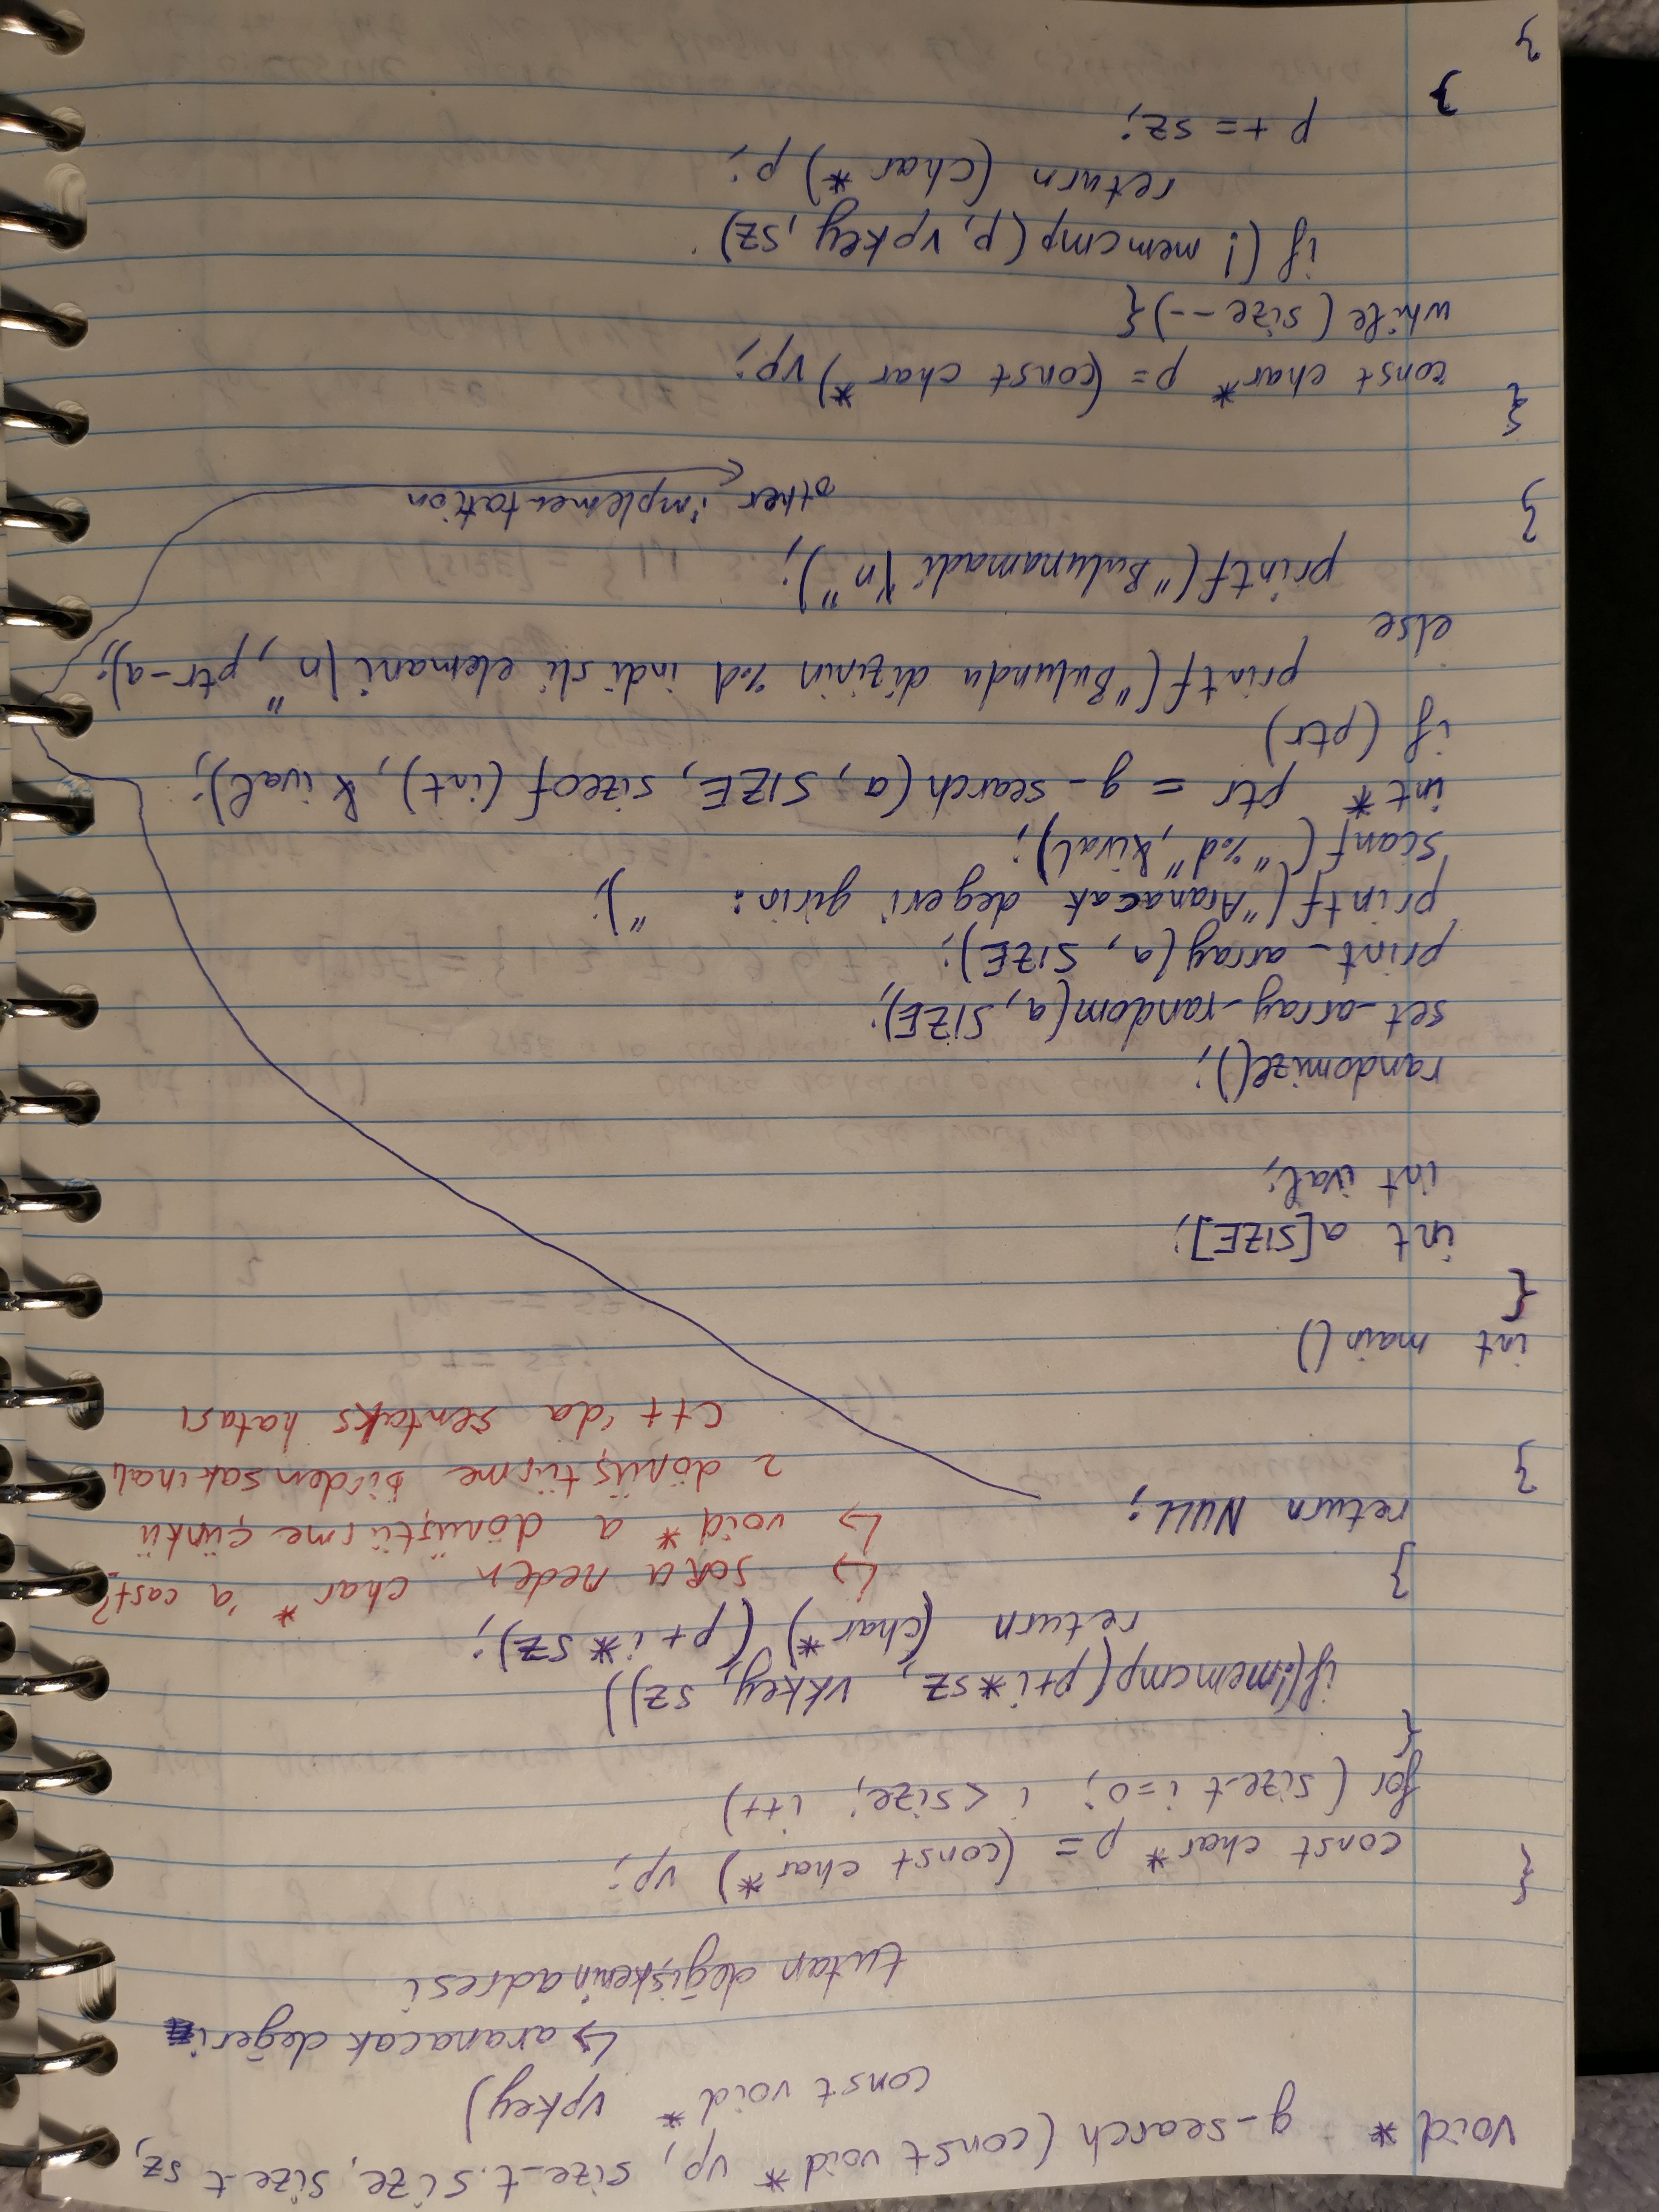 void * g_search (const void* vp, size_t size, size_t sz,
const void* vpkey)
↳ aranacak değeri
tutan değişkenin adresi
{
const char* p = (const char*) vp;
for ( size_t i=0; i < size; i++)
{
if(!memcmp(p+i*sz, vkkey, sz))
return (char*) (p+i*sz);
↳ soru neden char* 'a cast?
}
↳ void* a dönüştürme çünkü
return NULL;
2 dönüştürme birden sakıncalı
}
C++ 'da sentaks hatası
int main()
{
int a[SIZE];
int ival;
randomize();
set_array_random(a, SIZE);
print_array(a, SIZE);
printf("Aranacak degeri girin: ");
scanf("%d",&ival);
int* ptr = g_search(a, SIZE, sizeof (int), & ival);
if (ptr)
printf("Bulundu dizinin %d indisli elemani\n", ptr-a);
else
printf("Bulunamadi\n");
}
other implementation
{
const char* p= (const char*) vp;
while ( size --){
if (! memcmp(p, vpkey, sz)
return (char*) p;
p += sz;
}
}